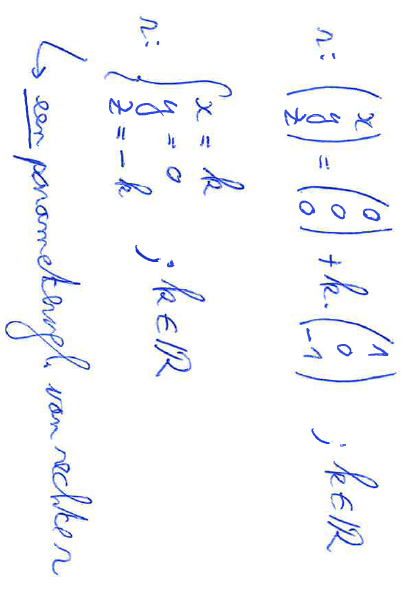 r: (x y z) = (0 0 0) + k. (1 0 -1) ; k∈ℝ
r: { x = k
y = 0 ; k∈ℝ
z = -k
↳ een parametervgl. van rechte r